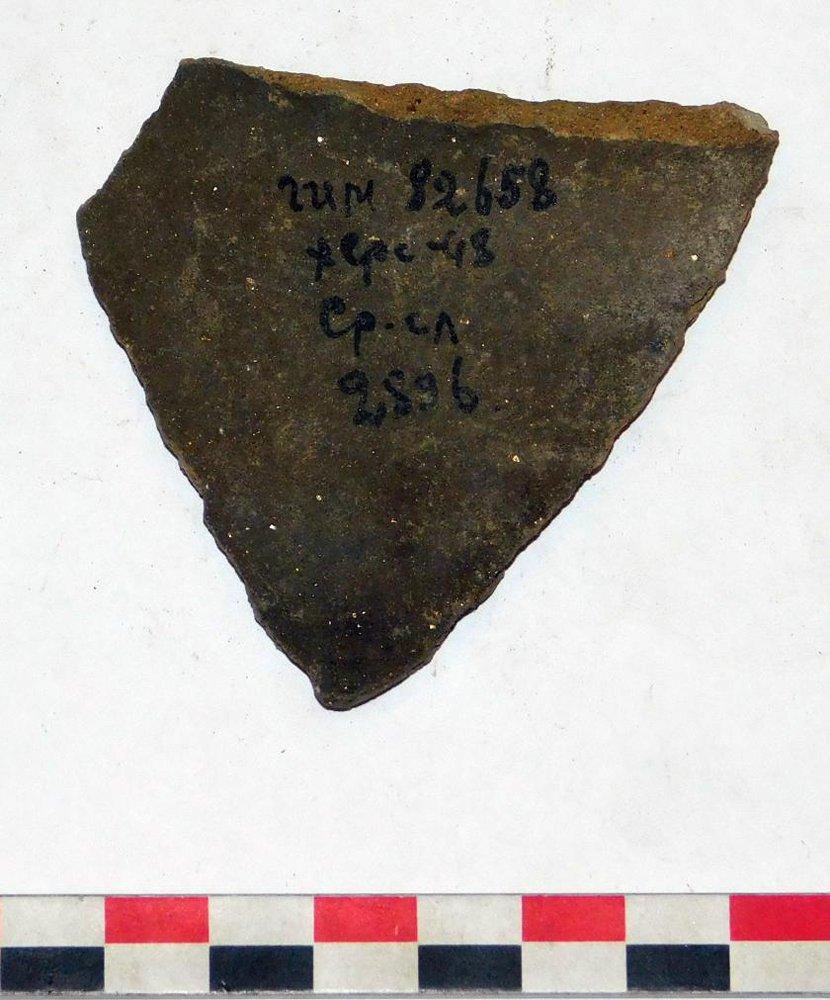 гим 82658
херс-48
Ср.-сл
2896.